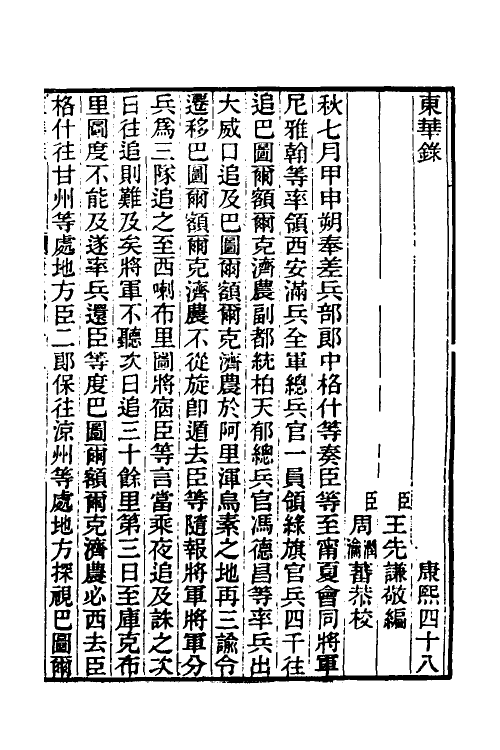 東華錄 康熙四十八
臣王先謙敬編
臣周潤蕃 瀹蕃恭校
秋七月甲申朔奉差兵部郎中格什等奏臣等至甯夏會同將軍
尼雅翰等率領西安滿兵全軍總兵官一員領綠旗官兵四千往
追巴圖爾額爾克濟農副都統柏天郁總兵官馮德昌等率兵出
大威口追及巴圖爾額爾克濟農於阿里渾烏素之地再三諭令
遷移巴圖爾額爾克濟農不從旋卽遁去臣等隨報將軍將軍分
兵爲三隊追之至西喇布里圖將宿臣等言當乘夜追及誅之次
日往追則難及矣將軍不聽次日追三十餘里第三日至庫克布
里圖度不能及遂率兵還臣等度巴圖爾額爾克濟農必西去臣
格什往甘州等處地方臣二郎保往涼州等處地方探視巴圖爾